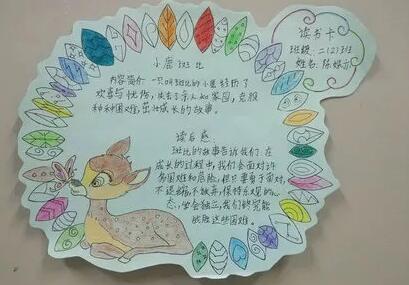 读书卡
班级：二(2)班
姓名：陈
小鹿班比
内容简介：一只叫班比的小鹿经历了
欢喜与忧伤，失去了亲人和家园，克服
种种困难，茁壮成长的故事。
读后感
班比的故事告诉我们：在
成长的过程中，我们会面对许
多困难和危险，但只要勇于面对，
不退缩，不放弃，保持乐观的心
态，学会独立，我们终究能
战胜这些困难。